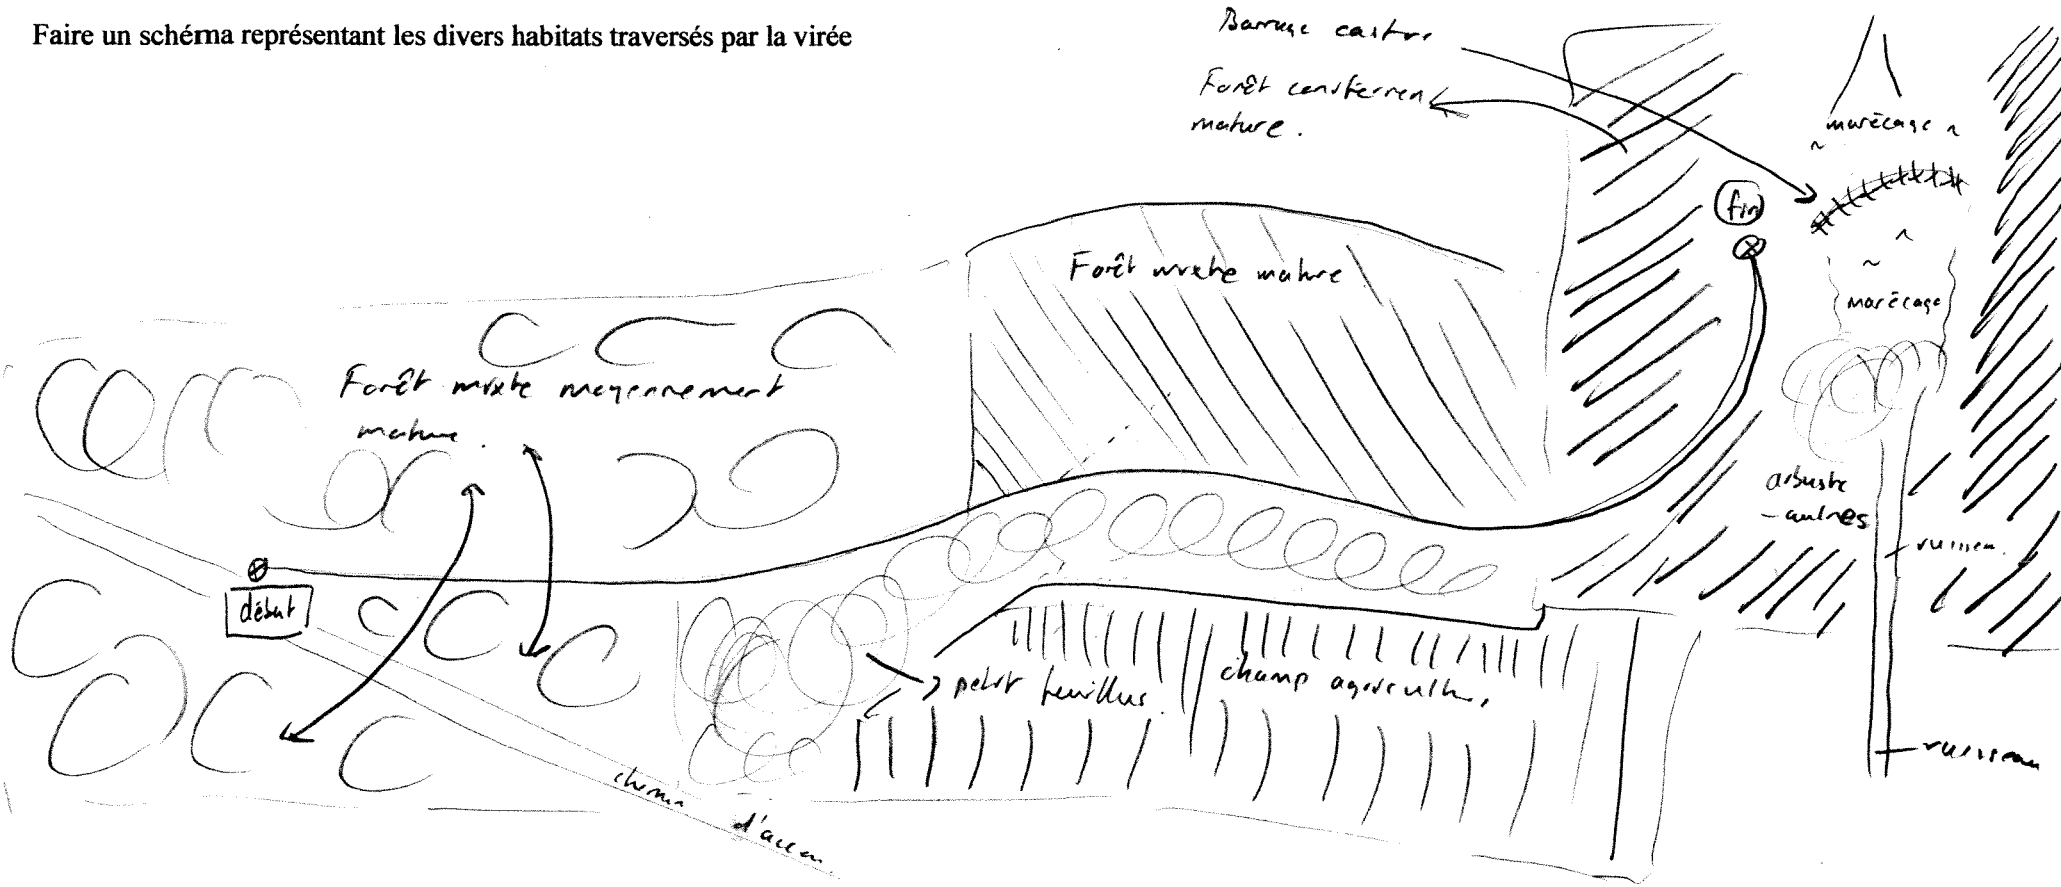 Faire un schéma représentant les divers habitats traversés par la virée
Barrage castor
Forêt
mature.
marécage
fin
Forêt mixte mature
marécage
Forêt mixte moyennement
mature.
arbuste
-aulnes
ruisseau
début
petit feuillus.
champ agriculture
ruisseau
chemin
d'accès